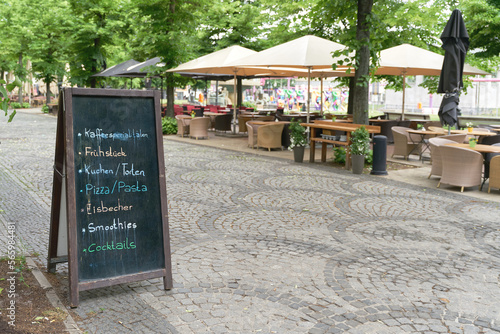 • Kaffeespezialitäten
• Frühstück
• Kuchen / Torten
• Pizza/Pasta
• Eisbecher
• Smoothies
• Cocktails
565984481